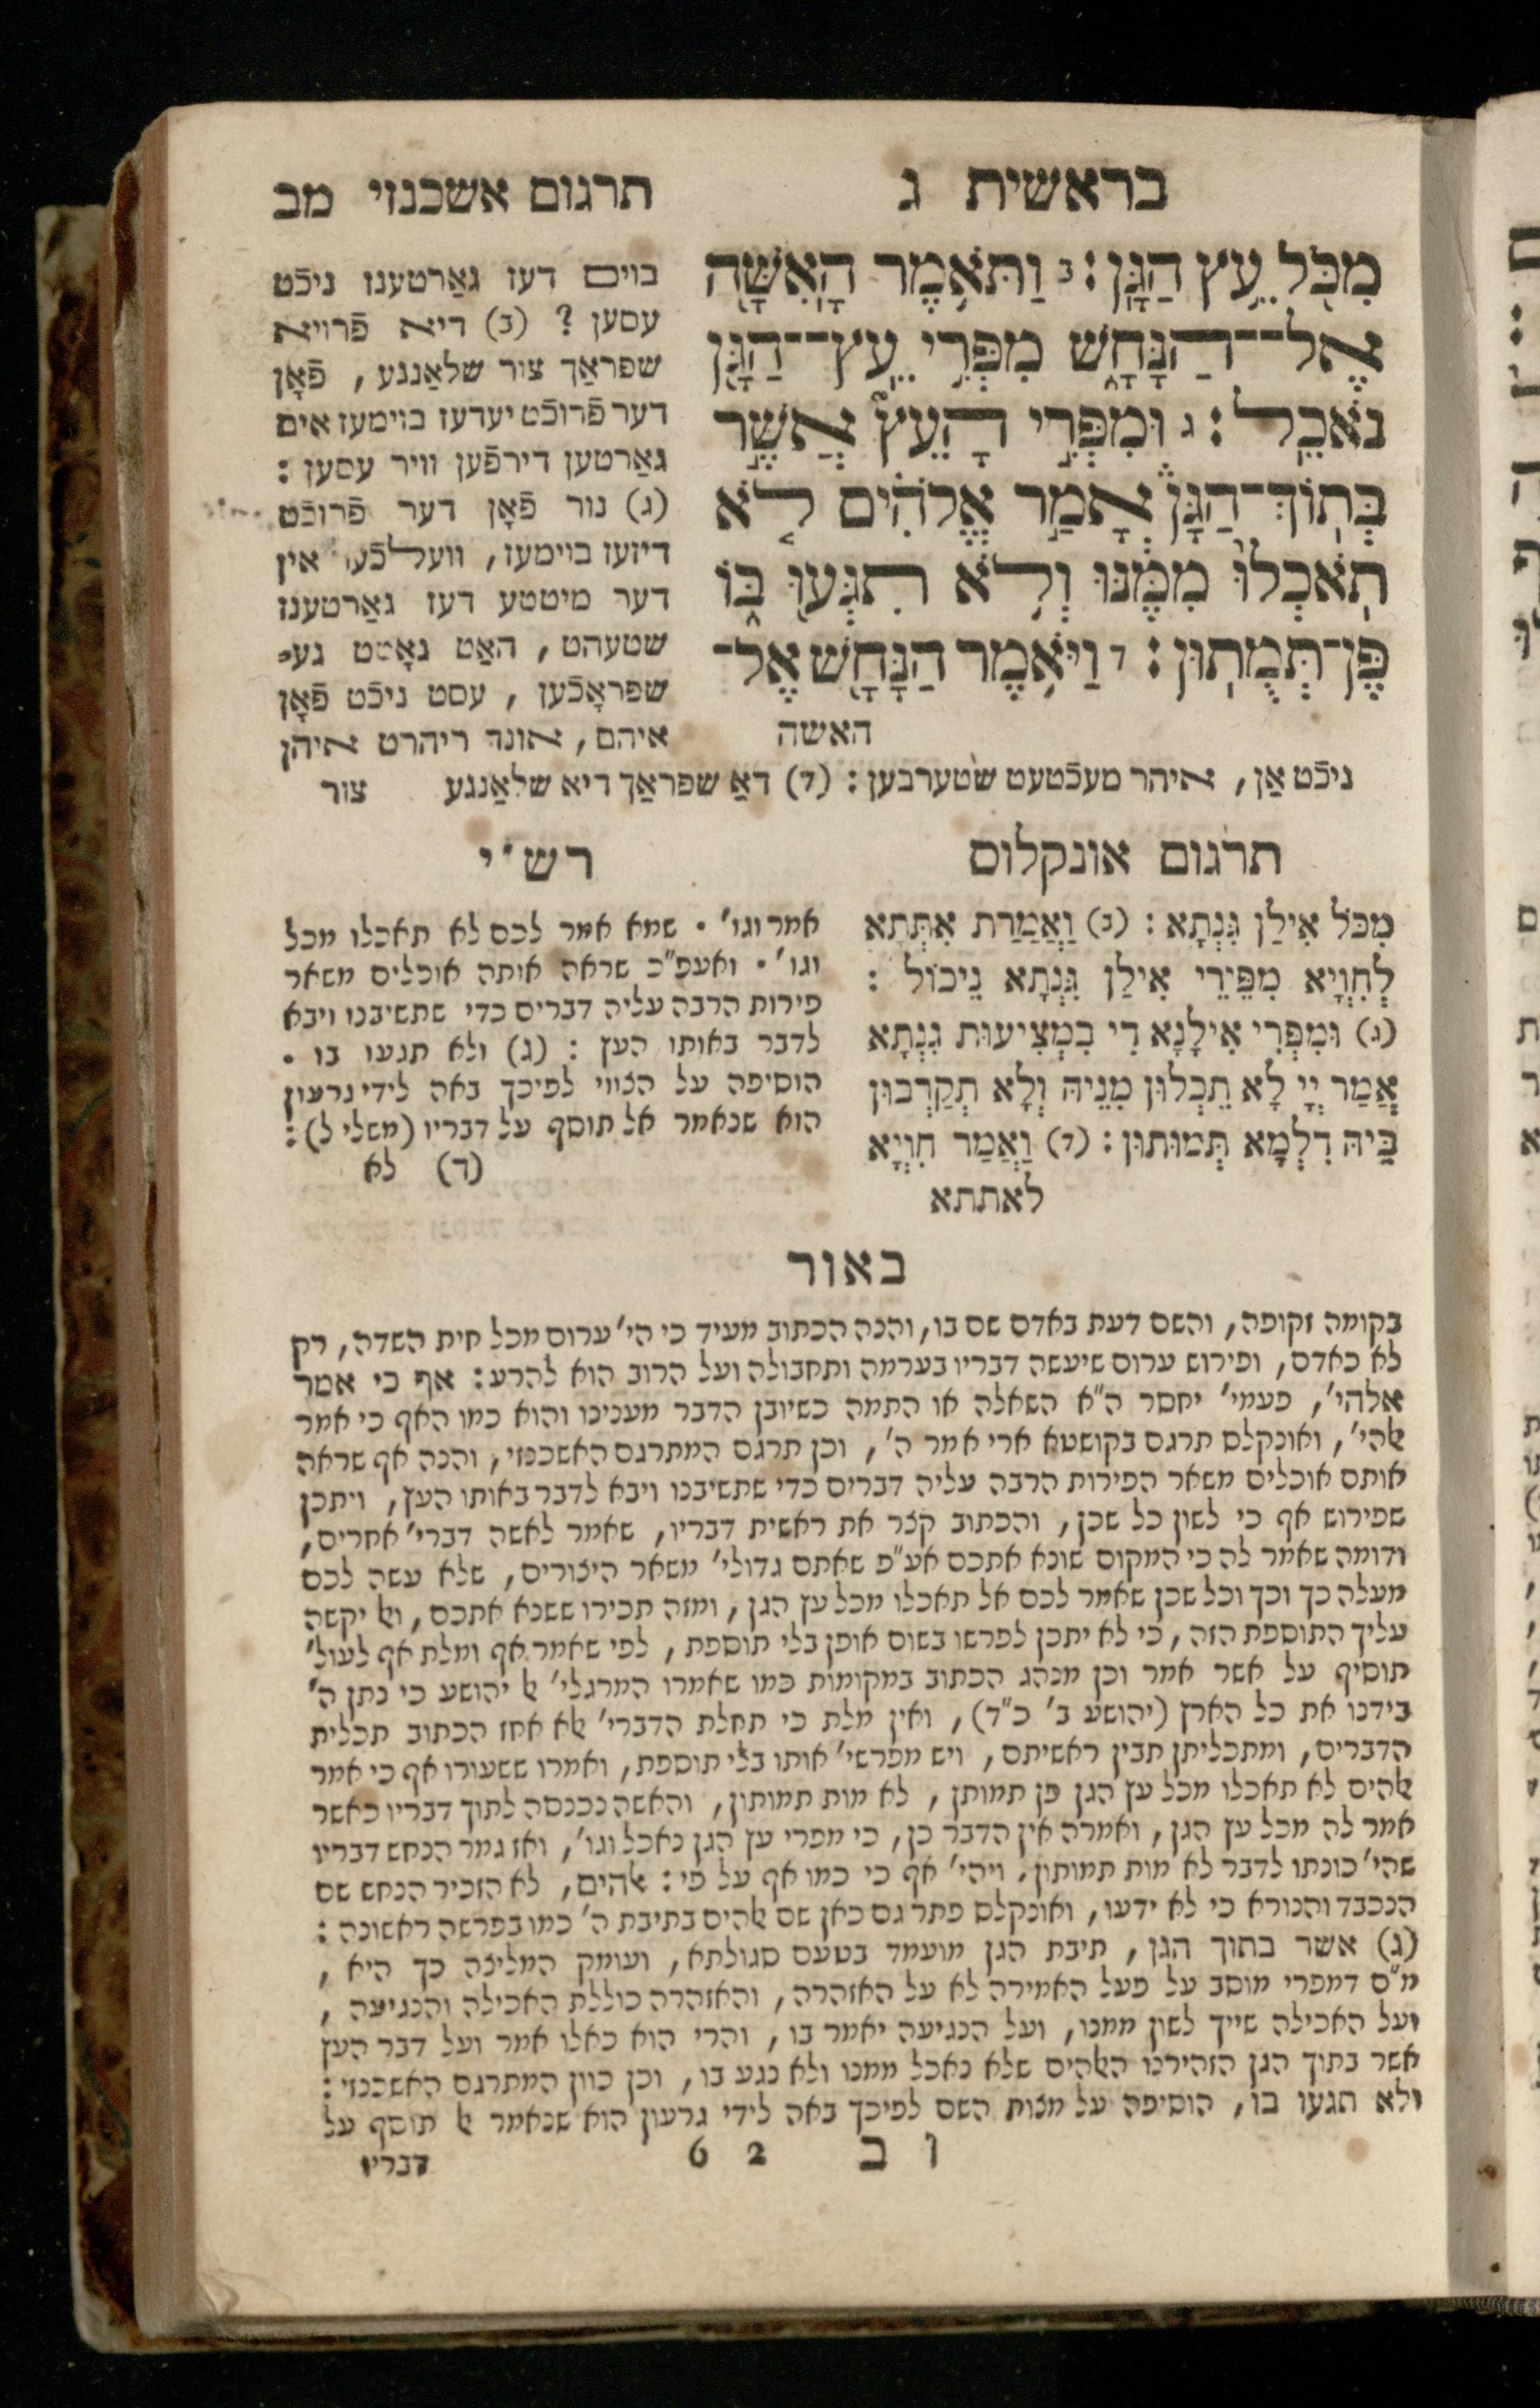 בראשית ג
תרגום אשכנזי מב
מִכֹּ֖ל עֵ֥ץ הַגָּֽן׃ ב וַתֹּ֥אמֶר הָֽאִשָּׁ֖ה
אֶל־הַנָּחָ֑שׁ מִפְּרִ֥י עֵֽץ־הַגָּ֖ן
נֹאכֵֽל׃ ג וּמִפְּרִ֣י הָעֵץ֮ אֲשֶׁ֣ר
בְּתֽוֹךְ־הַגָּן֒ אָמַ֣ר אֱלֹהִ֗ים לֹ֤א
תֹֽאכְלוּ֙ מִמֶּ֔נּוּ וְלֹ֥א תִגְּע֖וּ בּ֑וֹ
פֶּן־תְּמֻתֽוּן׃ ד וַיֹּ֥אמֶר הַנָּחָ֖שׁ אֶל־
האשה
בוים דעז גאַרטענז ניכֿט
עסען ? (ב) דיא פֿרויא
שפראַך צור שלאַנגע, פֿאָן
דער פֿרוכֿט יעדעז בוימעז אים
גאַרטען דירפֿען וויר עסען :
(ג) נור פֿאָן דער פֿרוכֿט
דיזעז בוימעז, וועלכֿעז אין
דער מיטטע דעז גאַרטענז
שטעהט, האַט גאָטט גע־
שפראָכֿען, עסט ניכֿט פֿאָן
איהם, אונד ריהרט איהן
ניכֿט אַן, איהר מעכֿטעט שטערבען : (ד) דאַ שפראַך דיא שלאַנגע צור
תרגום אונקלוס
מִכֹּל אִילַן גִּנְתָא : (ב) וַאֲמַרַת אִתְּתָא
לְחִוְיָא מִפֵּירֵי אִילַן גִּנְתָא נֵיכוּל :
(ג) וּמִפְּרִי אִילָנָא דִי בִמְצִיעוּת גִנְתָא
אֲמַר יְיָ לָא תֵכְלוּן מִנֵּיהּ וְלָא תְקַרְבוּן
בֵּיהּ דִלְמָא תְּמוּתוּן : (ד) וַאֲמַר חִוְיָא
לאתתא
רש״י
אמר וגו׳ • שמא אמר לכם לא תאכלו מכל
וגו׳ • ואעפ״כ שראה אותה אוכלים משאר
פירות הרבה עליה דברים כדי שתשיבנו ויבא
לדבר באותו העץ : (ג) ולא תגעו בו •
הוסיפה על הצווי לפיכך באה לידי גרעון
הוא שנאמר אל תוסף על דבריו (משלי ל) :
(ד) לא
באור
בקומה זקופה, והשם דעת באדם שם בו, והנה הכתוב מעיד כי הי׳ ערום מכל חית השדה, רק
לא כאדם, ופירוש ערום שיעשה דבריו בערמה ותחבולה ועל הרוב הוא להרע : אף כי אמר
אלהי׳, פעמי׳ יחסר ה״א השאלה או התמה כשיובן הדבר מעניינו והוא כמו האף כי אמר
אלהי׳, ואונקלס תרגם בקושטא ארי אמר ה׳, וכן תרגם המתרגם האשכנזי, והנה אף שראה
אותם אוכלים משאר הפירות הרבה עליה דברים כדי שתשיבנו ויבא לדבר באותו העץ, ויתכן
שפירוש אף כי לשון כל שכן, והכתוב קצר את ראשית דבריו, שאמר לאשה דברי׳ אחרים,
ודומה שאמר לה כי המקום שונא אתכם אע״פ שאתם גדולי׳ משאר היצורים, שלא עשה לכם
מעלה כך וכך וכל שכן שאמר לכם אל תאכלו מכל עץ הגן, ומזה תכירו ששנא אתכם, ואל יקשה
עליך התוספת הזה, כי לא יתכן לפרשו בשום אופן בלי תוספת, לפי שאמר אף ומלת אף לעול׳
תוסיף על אשר אמר וכן מנהג הכתוב במקומות כמו שאמרו המרגלי׳ אל יהושע כי נתן ה׳
בידנו את כל הארץ (יהושע ב׳ כ״ד), ואין מלת כי תחלת הדברי׳ אלא אחז הכתוב תכלית
הדברים, ומתכליתן תבין ראשיתם, ויש מפרשי׳ אותו בלי תוספת, ואמרו ששעורו אף כי אמר
אלהים לא תאכלו מכל עץ הגן פן תמותן, לא מות תמותון, והאשה נכנסה לתוך דבריו כאשר
אמר לה מכל עץ הגן, ואמרה אין הדבר כן, כי מפרי עץ הגן נאכל וגו׳, ואז גמר הנחש דבריו
שהי׳ כונתו לדבר לא מות תמותון, ויהי׳ אף כי כמו אף על פי : אלהים, לא הזכיר הנחש שם
הנכבד והנורא כי לא ידעו, ואונקלס פתר גם כאן שם אלהים בתיבת ה׳ כמו בפרשה ראשונה :
(ג) אשר בתוך הגן, תיבת הגן מועמד בטעם סגולתא, ועומק המליצה כך היא,
מ״ם דמפרי מוסב על פעל האמירה לא על האזהרה, והאזהרה כוללת האכילה והנגיעה,
ועל האכילה שייך לשון ממנו, ועל הנגיעה יאמר בו, והרי הוא כאלו אמר ועל דבר העץ
אשר בתוך הגן הזהירנו האלהים שלא נאכל ממנו ולא נגע בו, וכן כוון המתרגם האשכנזי :
ולא תגעו בו, הוסיפה על מצות השם לפיכך באה לידי גרעון הוא שנאמר אל תוסף על
ו ב 2 6 דבריו